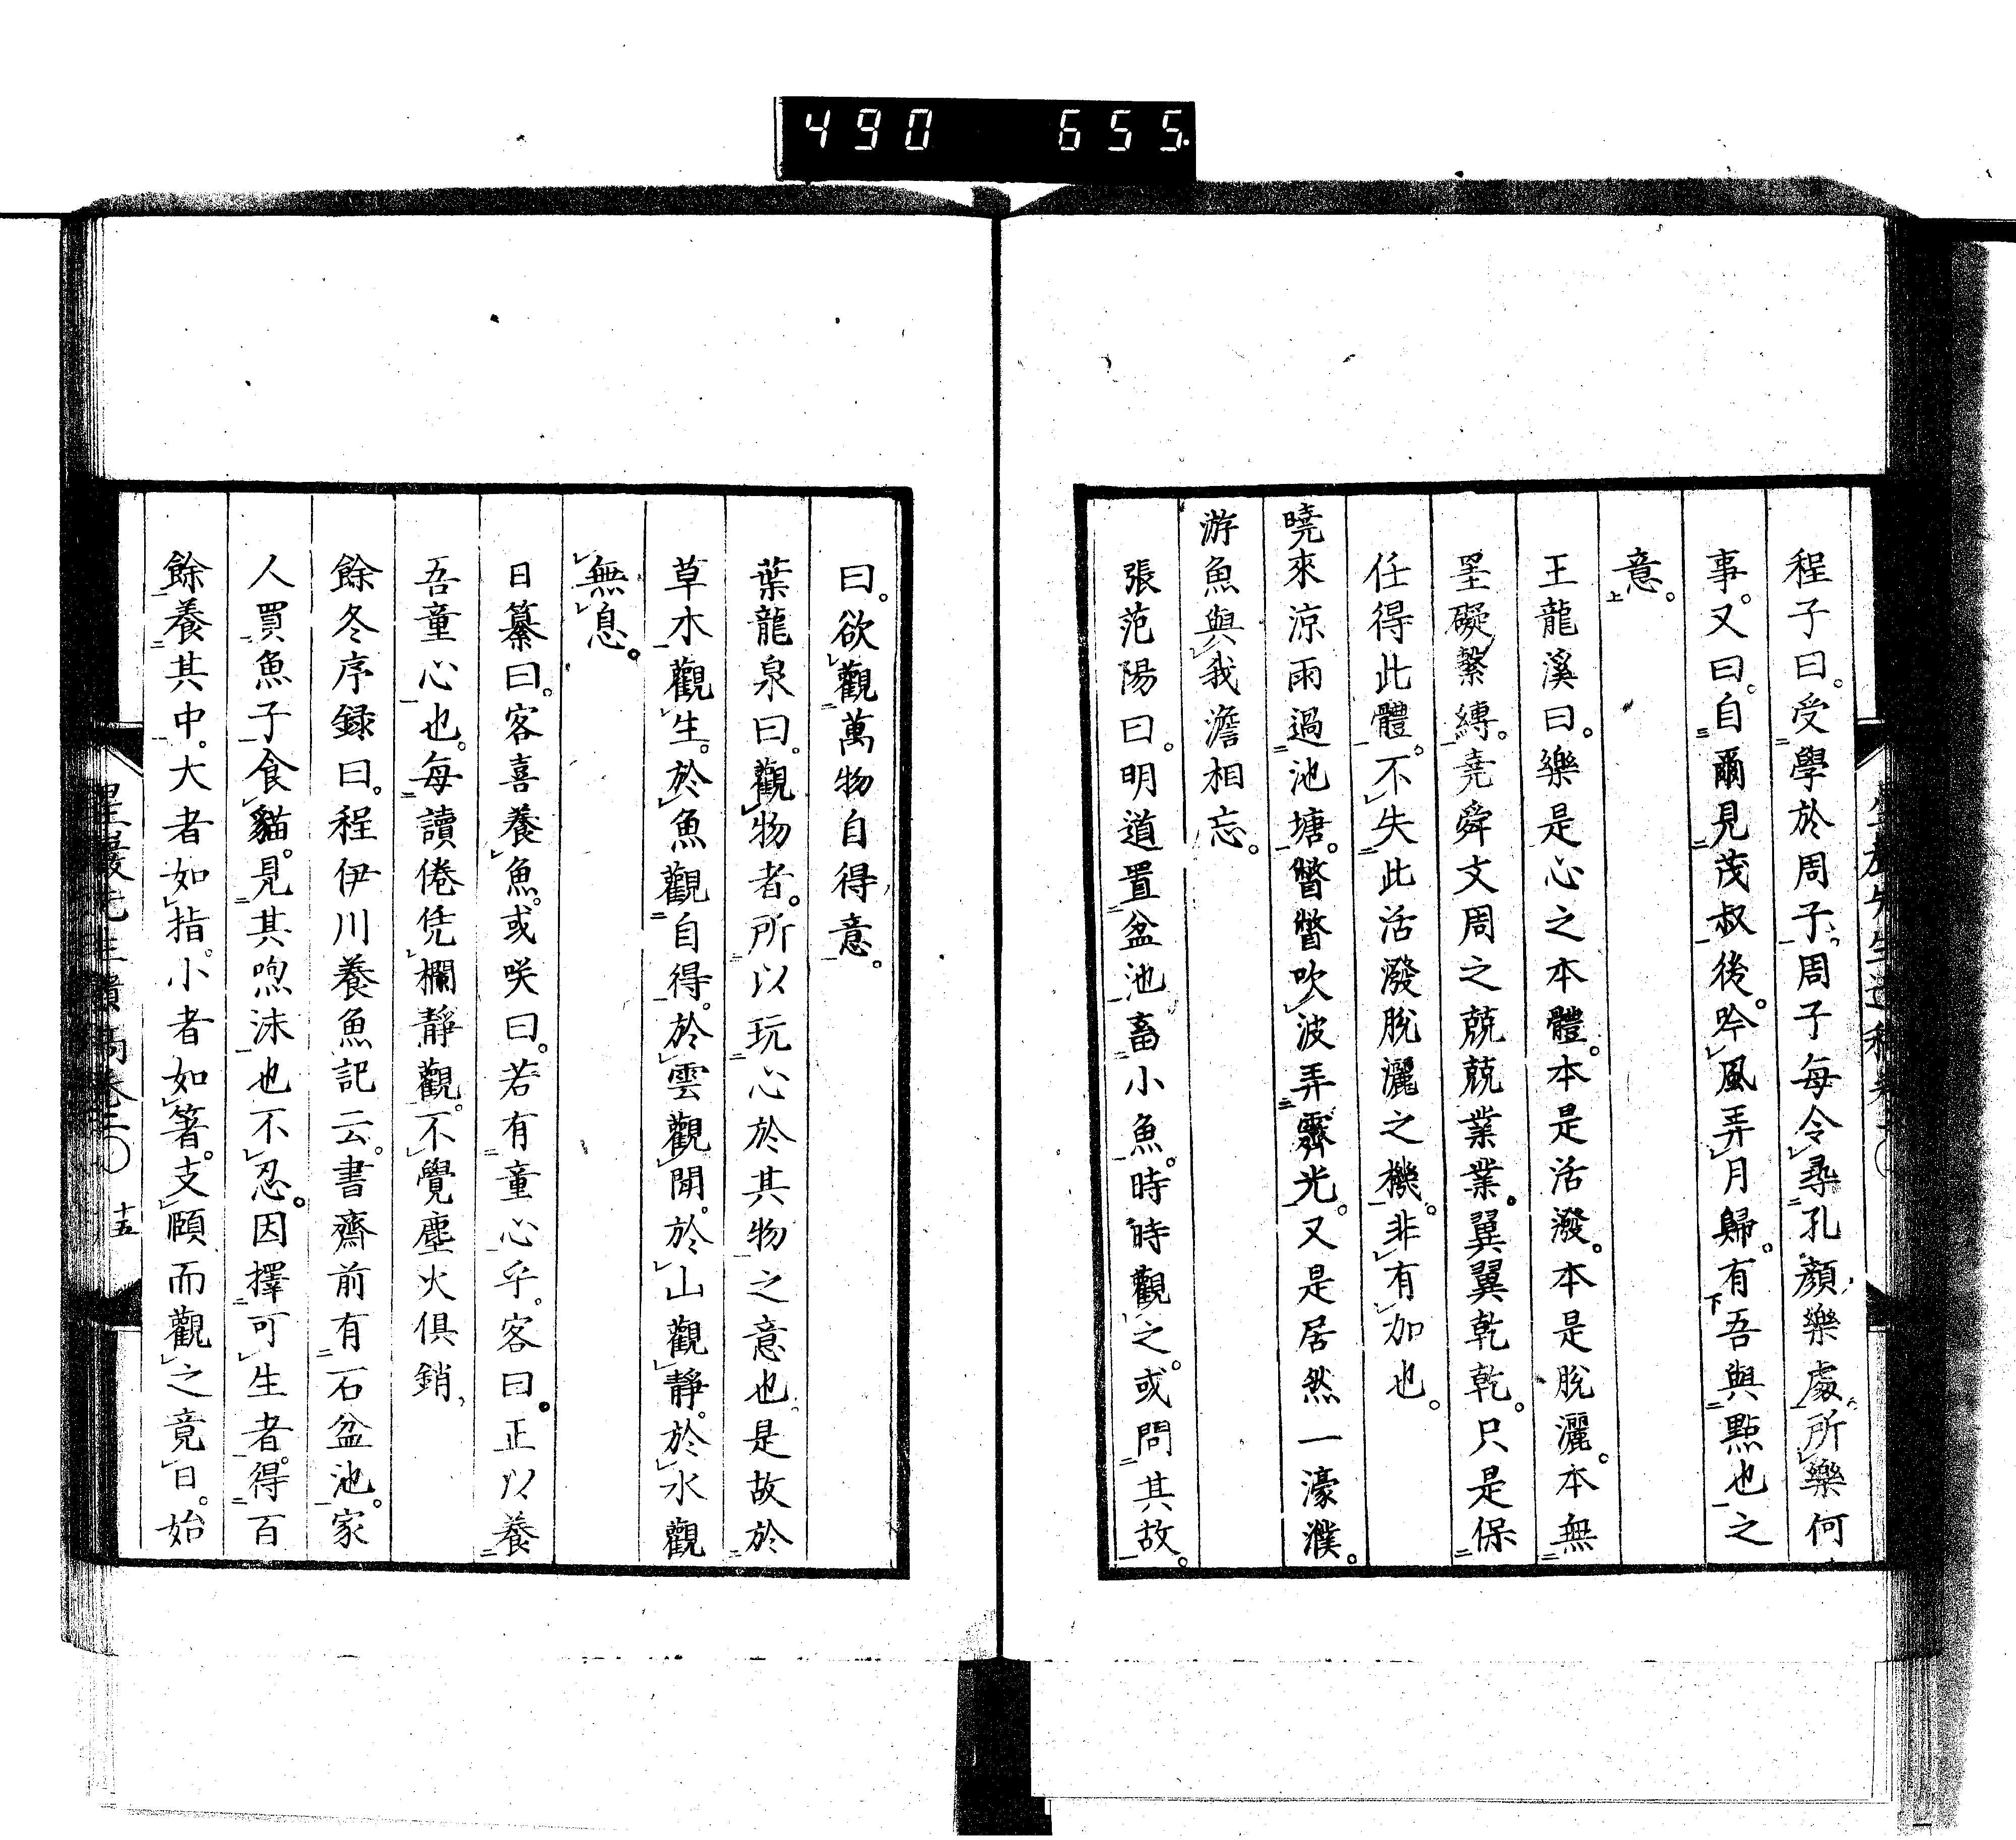 490 655
程子曰。受學於周子。周子每令尋孔顏樂處。所樂何
事。又曰。自爾見茂叔後。吟風弄月歸。有吾與點也之
意。
王龍溪曰。樂是心之本體。本是活潑。本是脫灑。本無
罣礙繫縛。堯舜文周之兢兢業業。翼翼乾乾。只是保
任得此體。不失此活潑脫灑之機。非有加也。
曉來涼雨過池塘。瞥瞥吹波弄霽光。又是居然一濠濮。
游魚與我澹相忘。
張范陽曰。明道置盆池畜小魚。時時觀之。或問其故。
曰。欲觀萬物自得意。
葉龍泉曰。觀物者。所以玩心於其物之意也。是故於
草木觀生。於魚觀自得。於雲觀閒。於山觀靜。於水觀
無息。
日纂曰。客喜養魚。或咲曰。若有童心乎。客曰。正以養
吾童心也。每讀倦凭欄靜觀。不覺塵火俱銷、
餘冬序録曰。程伊川養魚記云。書齋前有石盆池。家
人買魚子食貓。見其喣沫也不忍。因擇可生者。得百
餘養其中。大者如指。小者如箸。支頤而觀之竟日。始
十五